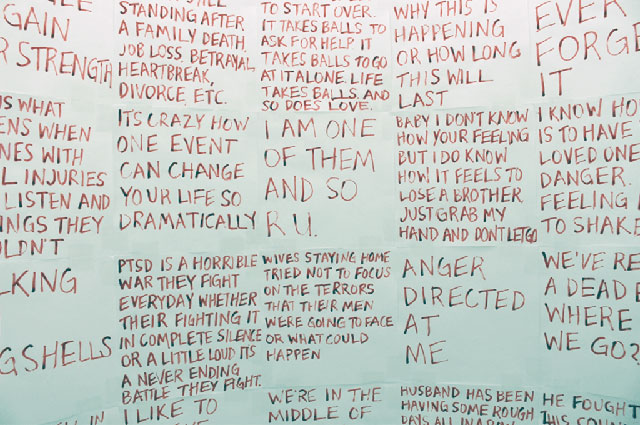 GAIN
R STRENGTH
STANDING AFTER
A FAMILY DEATH,
JOB LOSS, BETRAYAL,
HEARTBREAK,
DIVORCE, ETC.
TO START OVER.
IT TAKES BALLS TO
ASK FOR HELP. IT
TAKES BALLS TO GO
AT IT ALONE. LIFE
TAKES BALLS. AND
SO DOES LOVE.
WHY THIS IS
HAPPENING
OR HOW LONG
THIS WILL
LAST
EVER
FORGE
IT
IS WHAT
ENS WHEN
NES WITH
L INJURIES
LISTEN AND
INGS THEY
LDN'T
ITS CRAZY HOW
ONE EVENT
CAN CHANGE
YOUR LIFE SO
DRAMATICALLY
I AM ONE
OF THEM
AND SO
R U.
BABY I DONT KNOW
HOW YOUR FEELING
BUT I DO KNOW
HOW IT FEELS TO
LOSE A BROTHER.
JUST GRAB MY
HAND AND DONT LET GO
I KNOW HO
IS TO HAVE
LOVED ONE
DANGER.
FEELING I
TO SHAKE
LKING
GSHELLS
PTSD IS A HORRIBLE
WAR THEY FIGHT
EVERYDAY WHETHER
THEIR FIGHTING IT
IN COMPLETE SILENCE
OR A LITTLE LOUD ITS
A NEVER ENDING
BATTLE THEY FIGHT.
WIVES STAYING HOME
TRIED NOT TO FOCUS
ON THE TERRORS
THAT THEIR MEN
WERE GOING TO FACE
OR WHAT COULD
HAPPEN
ANGER
DIRECTED
AT
ME
WE'VE RE
A DEAD E
WHERE
WE GO?
I LIKE TO
WE'RE IN THE
MIDDLE OF
HUSBAND HAS BEEN
HAVING SOME ROUGH
HE FOUGHT